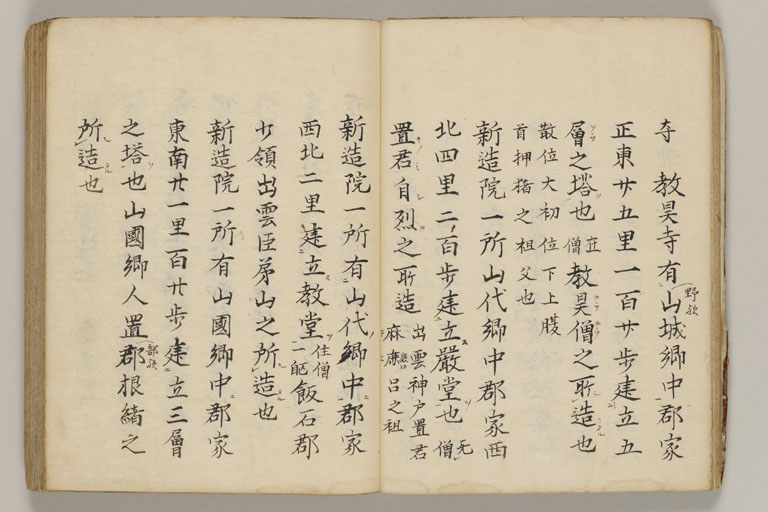 寺 教昊寺有山城郷中郡家
野歟
正東廿五里一百廿歩建立五
層之塔也 在僧 教昊僧之所造也
散位大初位下上腹
首押猪之祖父也
新造院一所山代郷中郡家西
北四里二百歩建立嚴堂也 无僧
置君自烈之所造 出雲神戸置君
麻麻呂之祖
新造院一所有山代郷中郡家
西北二里建立教堂 住僧一躯 飯石郡
少領出雲臣弟山之所造也
新造院一所有山國郷中郡家
東南廿一里百廿歩建立三層
之塔也山國郷人置郡根緒之
部歟
所造也